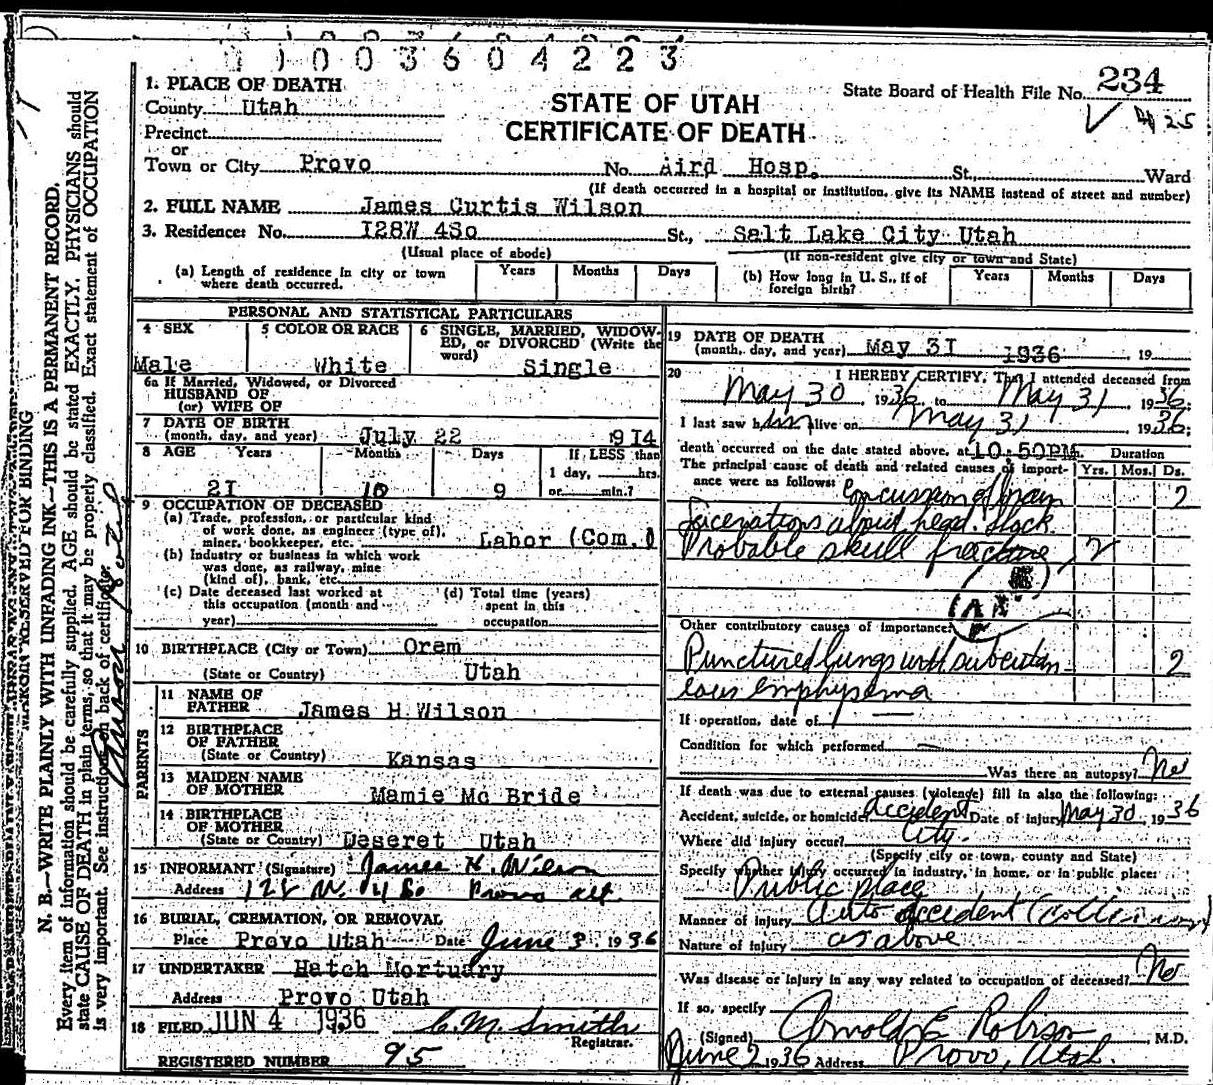 003604223
1. PLACE OF DEATH
County Utah
Precinct
or
Town or City Provo No. Aird Hosp. St., Ward
(If death occurred in a hospital or institution, give its NAME instead of street and number)
STATE OF UTAH
CERTIFICATE OF DEATH
State Board of Health File No. 234
2. FULL NAME James Curtis Wilson
3. Residence: No. I28W 4So St., Salt Lake City Utah
(Usual place of abode) (If non-resident give city or town and State)
(a) Length of residence in city or town where death occurred. Years Months Days
(b) How long in U. S., if of foreign birth? Years Months Days
PERSONAL AND STATISTICAL PARTICULARS
4 SEX Male
5 COLOR OR RACE White
6 SINGLE, MARRIED, WIDOWED, or DIVORCED (Write the word) Single
6a If Married, Widowed, or Divorced
HUSBAND OF
(or) WIFE OF
7 DATE OF BIRTH
(month, day, and year) July 22 9I4
8 AGE Years Months Days If LESS than
1 day, hrs.
or min.?
2I 10 9
9 OCCUPATION OF DECEASED
(a) Trade, profession, or particular kind
of work done, as engineer (type of),
miner, bookkeeper, etc. Labor (Com.)
(b) Industry or business in which work
was done, as railway, mine
(kind of), bank, etc.
(c) Date deceased last worked at
this occupation (month and
year)
(d) Total time (years)
spent in this
occupation
10 BIRTHPLACE (City or Town) Orem
(State or Country) Utah
PARENTS
11 NAME OF
FATHER James H Wilson
12 BIRTHPLACE
OF FATHER
(State or Country) Kansas
13 MAIDEN NAME
OF MOTHER Mamie Mc Bride
14 BIRTHPLACE
OF MOTHER
(State or Country) Deseret Utah
15 INFORMANT (Signature) James H. Wilson
Address 128 W. 4 So Provo
16 BURIAL, CREMATION, OR REMOVAL
Place Provo Utah Date June 3, 1936
17 UNDERTAKER Hatch Mortuary
Address Provo Utah
18 FILED JUN 4 1936 C. M. Smith
Registrar.
REGISTERED NUMBER 95
19 DATE OF DEATH
(month, day, and year) May 3I 1936, 19
20 I HEREBY CERTIFY, That I attended deceased from
May 30 1936, to May 31 1936;
I last saw him alive on May 31 1936;
death occurred on the date stated above, at 10:50PM. Duration
The principal cause of death and related causes of importance were as follows: Yrs. Mos. Ds.
Concussion of brain 2
Lacerations about head. Shock
Probable skull fracture 2
Other contributory causes of importance:
Punctured lungs with subcutan- 2
eous emphysema
If operation, date of
Condition for which performed
Was there an autopsy? No
If death was due to external causes (violence) fill in also the following:
Accident, suicide, or homicide Accident Date of injury May 30, 1936
Where did injury occur? City.
(Specify city or town, county and State)
Specify whether injury occurred in industry, in home, or in public place:
Public place
Manner of injury Auto accident (collision)
Nature of injury as above
Was disease or injury in any way related to occupation of deceased? No
If so, specify
(Signed) Arnold E Robison, M.D.
June 2 1936 Address Provo, Utah.
MARGIN RESERVED FOR BINDING
N. B.—WRITE PLAINLY WITH UNFADING INK—THIS IS A PERMANENT RECORD.
Every item of information should be carefully supplied. AGE should be stated EXACTLY. PHYSICIANS should
state CAUSE OF DEATH in plain terms, so that it may be properly classified. Exact statement of OCCUPATION
is very important. See instructions on back of certificate.